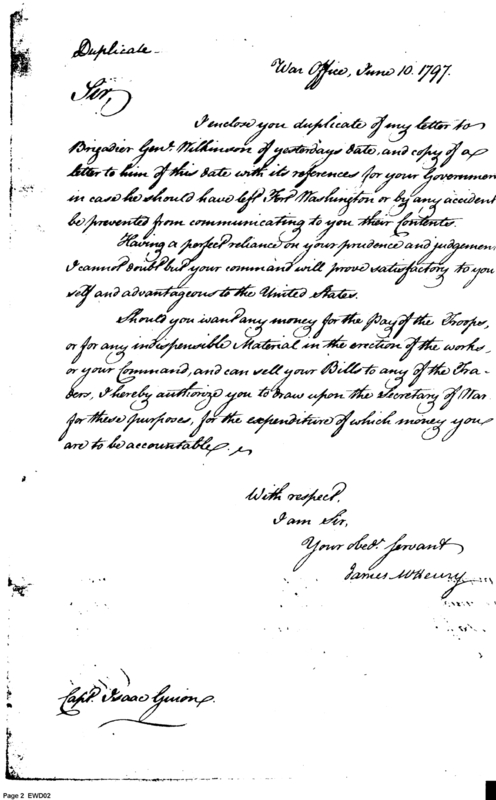 Duplicate
War Office, June 10. 1797.
Sir,
I enclose you duplicate of my letter to
Brigadier Genl. Wilkinson of yesterdays date, and copy of a
letter to him of this date with its references for your Governmen
in case he should have left Fort Washington or by any accident
be prevented from communicating to you their Contents.
Having a perfect reliance on your prudence and judgemen
I cannot doubt but your command will prove satisfactory to you
self and advantageous to the United States.
Should you want any money for the Pay of the Troops,
or for any indispensible Material in the erection of the works,
or your Command, and can sell your Bills to any of the Tra-
ders, I hereby authorize you to draw upon the Secretary of War
for these purposes, for the expenditure of which money you
are to be accountable.
With respect.
I am Sir,
Your obedt. servant
James McHenry
Capt. Isaac Guion.
Page 2 EWD02